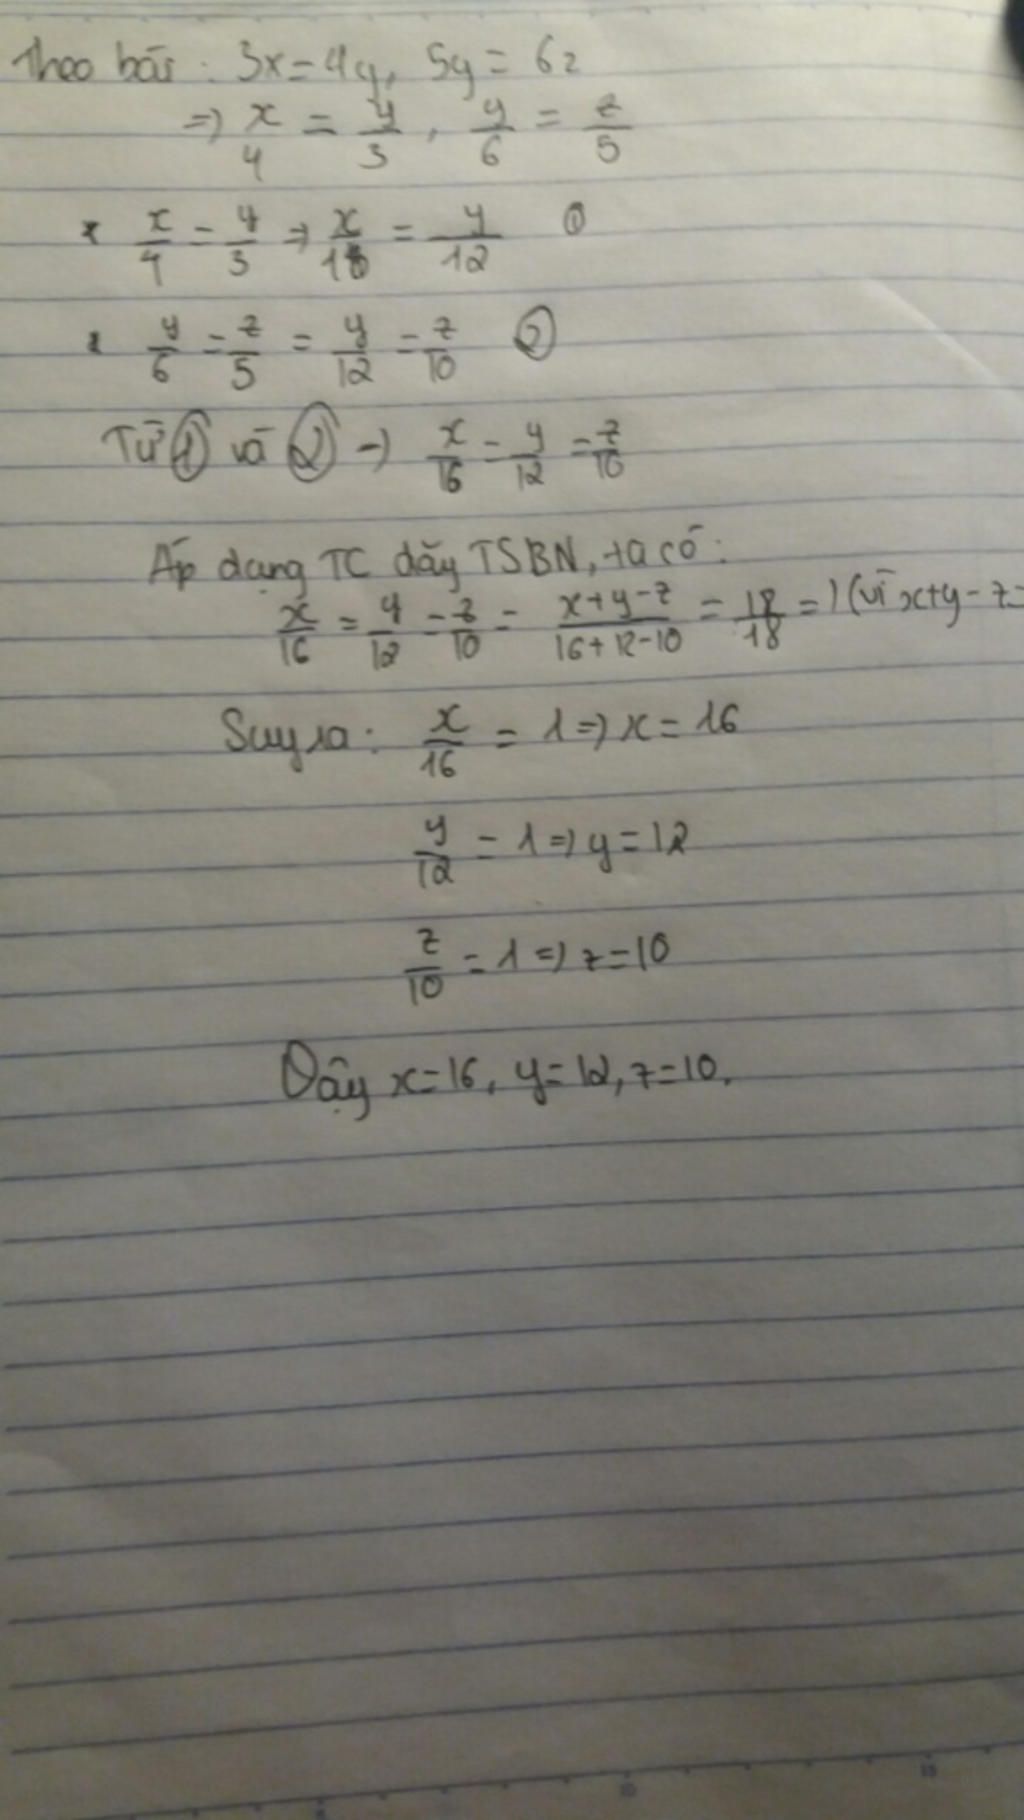 Theo bài: 3x = 4y, 5y = 6z
=> x/4 = y/3, y/6 = z/5
* x/4 = y/3 => x/16 = y/12 ①
* y/6 = z/5 = y/12 = z/10 ②
Từ ① và ② => x/16 = y/12 = z/10
Áp dụng TC dãy TSBN, ta có:
x/16 = y/12 = z/10 = x+y-z/16+12-10 = 18/18 = 1 (vì x+y-z=
Suy ra: x/16 = 1 => x = 16
y/12 = 1 => y = 12
z/10 = 1 => z = 10
Vậy x=16, y=12, z=10.
10
15